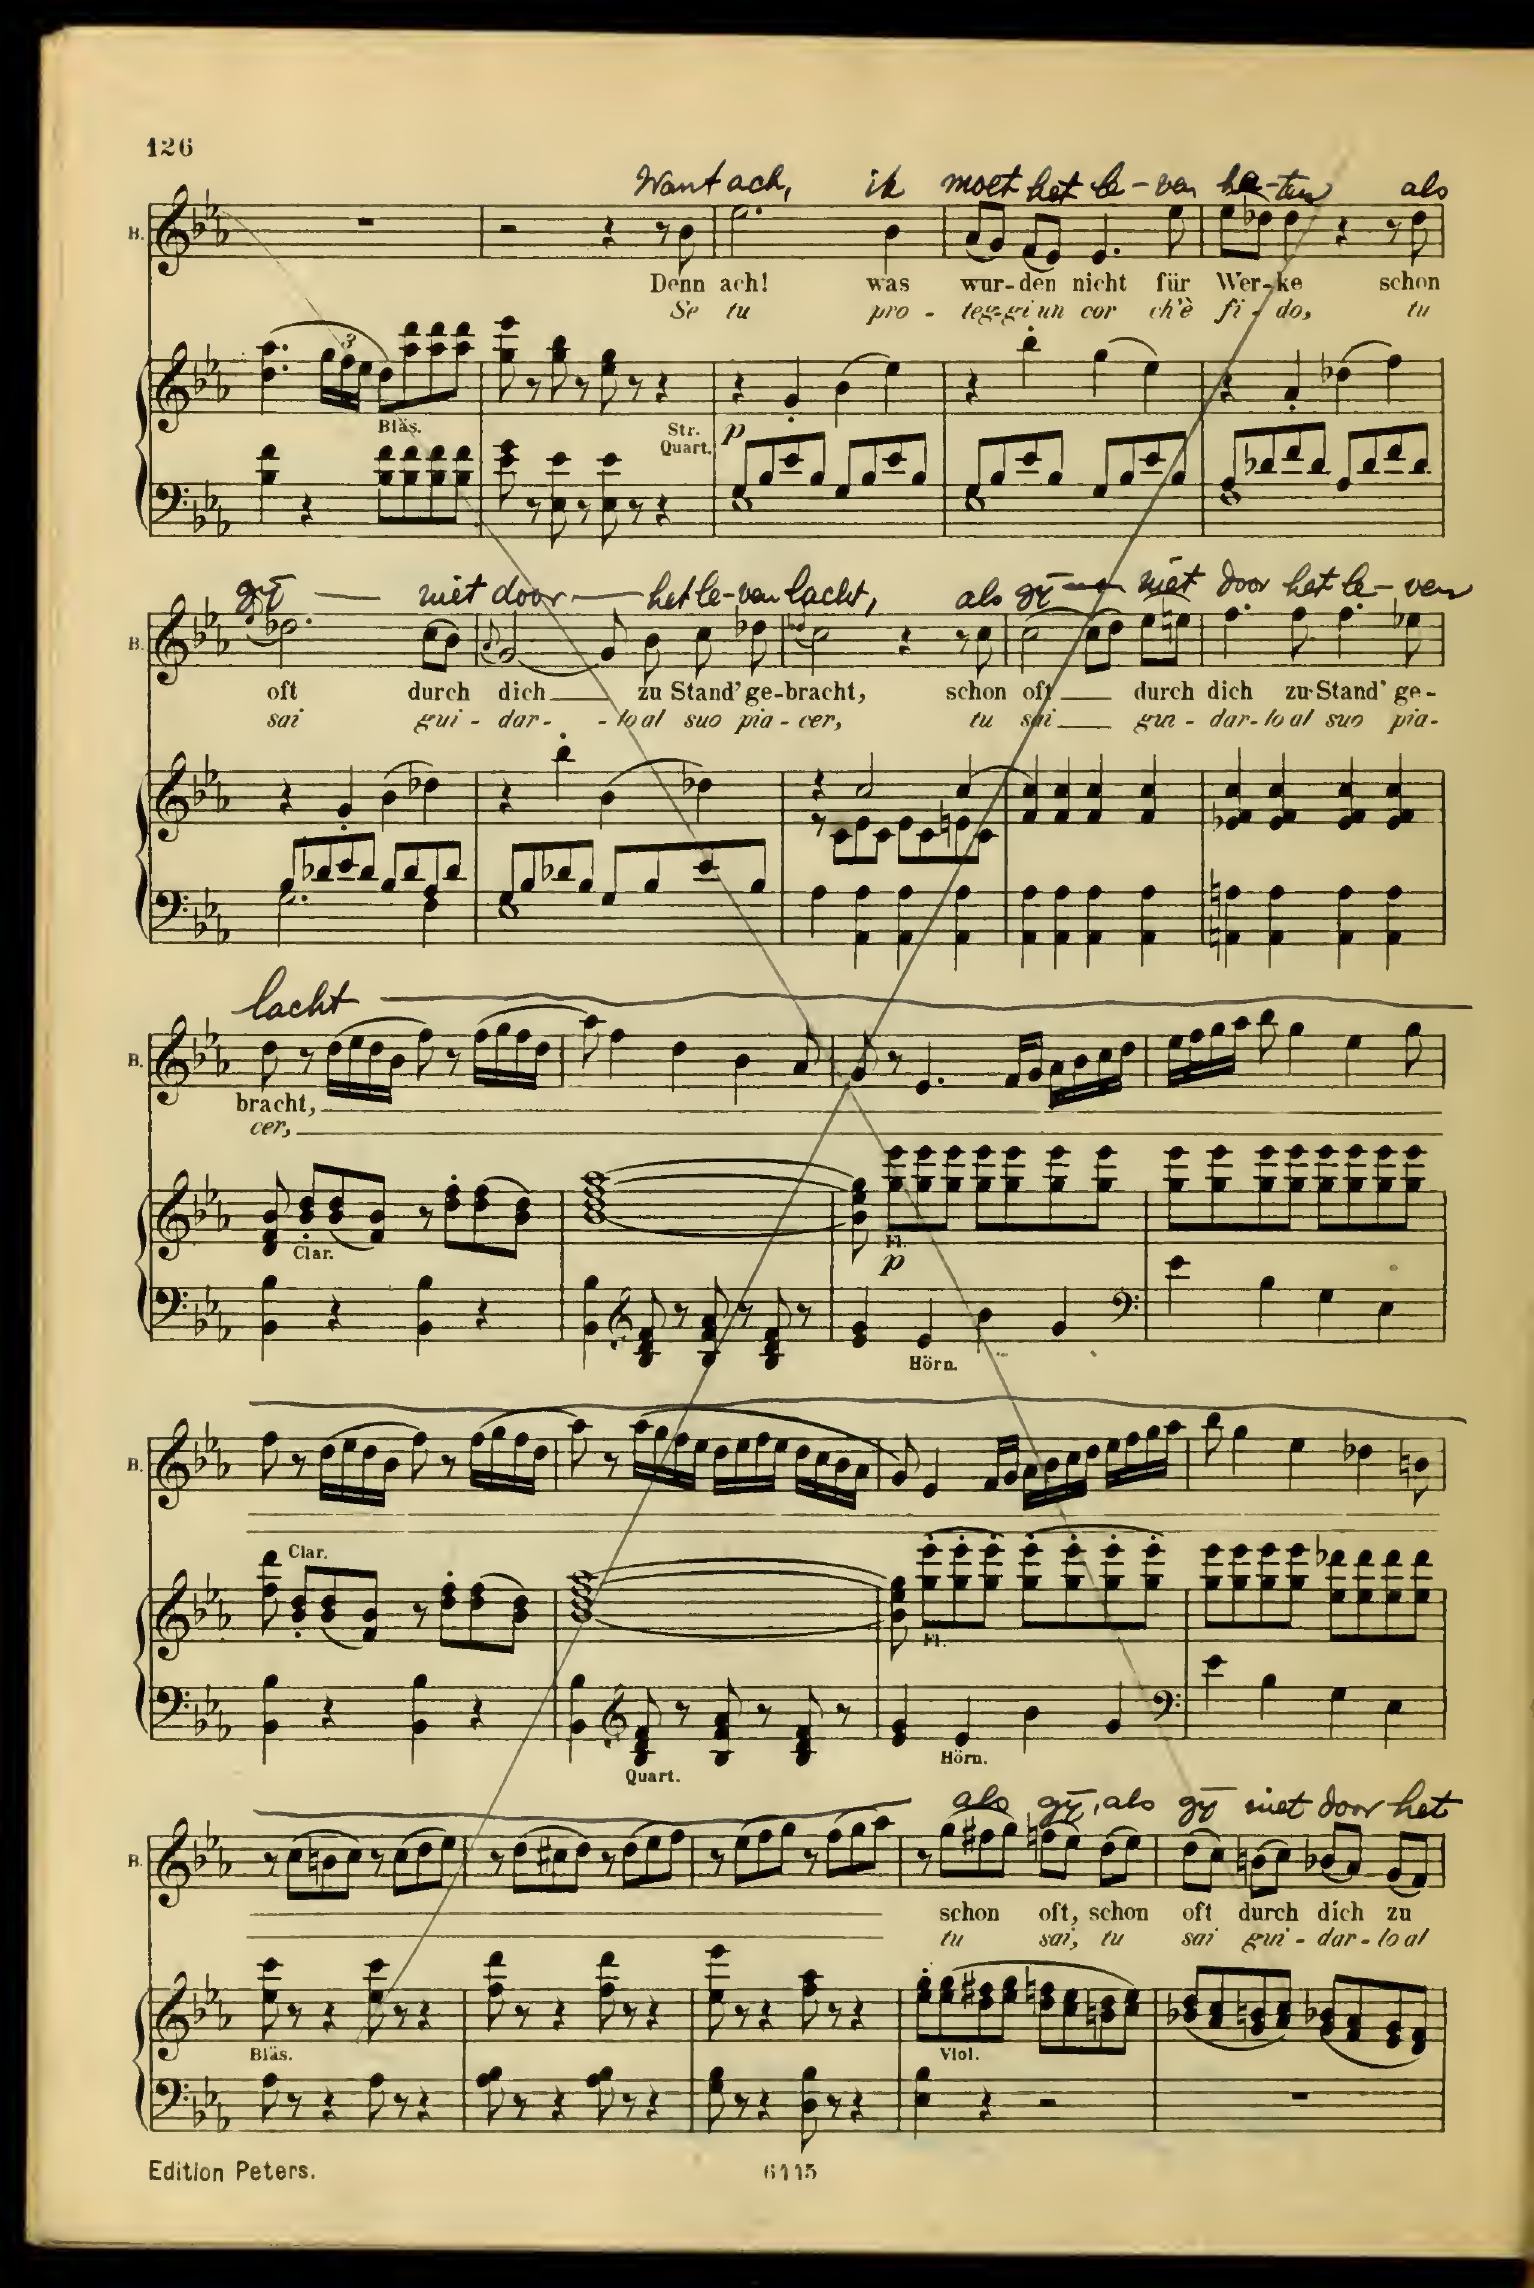 126
Want ach, ik moet het le-ven ha-ten als
B.
Denn ach! was wur-den nicht für Wer-ke schon
Se tu pro - teg-gi un cor ch'è fi - do, tu
3
Bläs.
Str. Quart.
p
gÿ — niet door — het le-ven lacht, als gÿ — niet door het le-ven
B.
oft durch dich zu Stand' ge-bracht, schon oft durch dich zu Stand' ge-
sai gui - dar - lo al suo pia - cer, tu sai gui - dar - lo al suo pia-
lacht
B.
bracht,
cer,
Clar.
Fl.
p
Hörn.
B.
Clar.
Fl.
Quart.
Hörn.
als gÿ, als gÿ niet door het
B.
schon oft, schon oft durch dich zu
tu sai, tu sai gui - dar - lo al
Bläs.
Viol.
Edition Peters.
6115